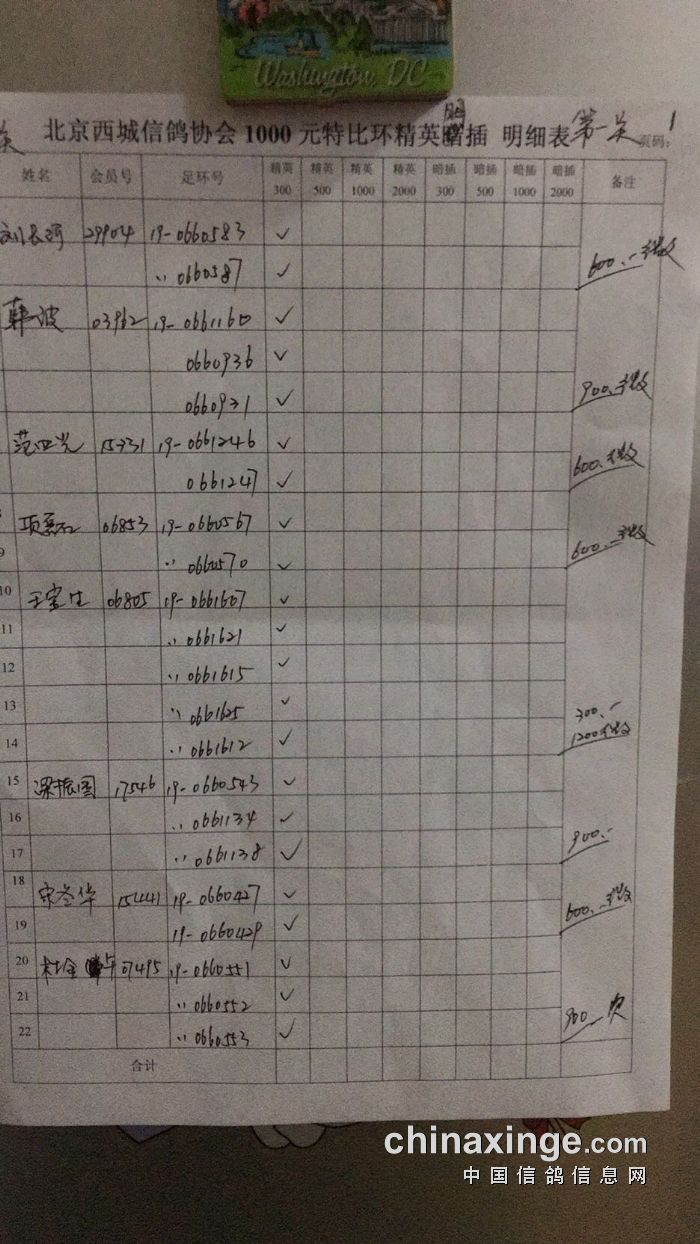 Washington, DC
北京西城信鸽协会1000元特比环精英暗插 明细表 第一关 页码: 1
姓名 会员号 足环号 精英300 精英500 精英1000 精英2000 暗插300 暗插500 暗插1000 暗插2000 备注
29904 19-0660583 ✓
,, 0660587 ✓ 600.-
韩波 03962 19-0661160 ✓
0660936 ✓
0660931 ✓ 900.
15731 19-0661246 ✓
0661247 ✓ 600.
06853 19-0660567 ✓
9 ,, 0660570 ✓ 600.-
10 王宝生 06805 19-0661607 ✓
11 ,, 0661621 ✓
12 ,, 0661615 ✓
13 ,, 0661625 ✓ 300.-
14 ,, 0661612 ✓ 1200
15 梁振国 17546 19-0660543 ✓
16 ,, 0661134 ✓
17 ,, 0661138 ✓ 900.-
18 15441 19-0660427 ✓
19 19-0660429 ✓ 600.-
20 07495 19-0660551 ✓
21 ,, 0660552 ✓
22 ,, 0660553 ✓ 900
合计
chinaxinge.com
中国信鸽信息网